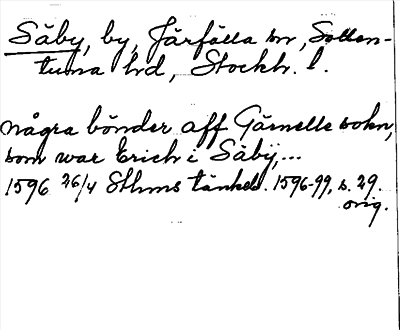 Säby, by, Järfälla sn, Sollen-
tuna hd, Stockh. l.
några bönder aff Gärnelle sokn,
som war Erich i Säbÿ,...
1596 26/4 Sthms tänkeb. 1596-99, s. 29.
orig.